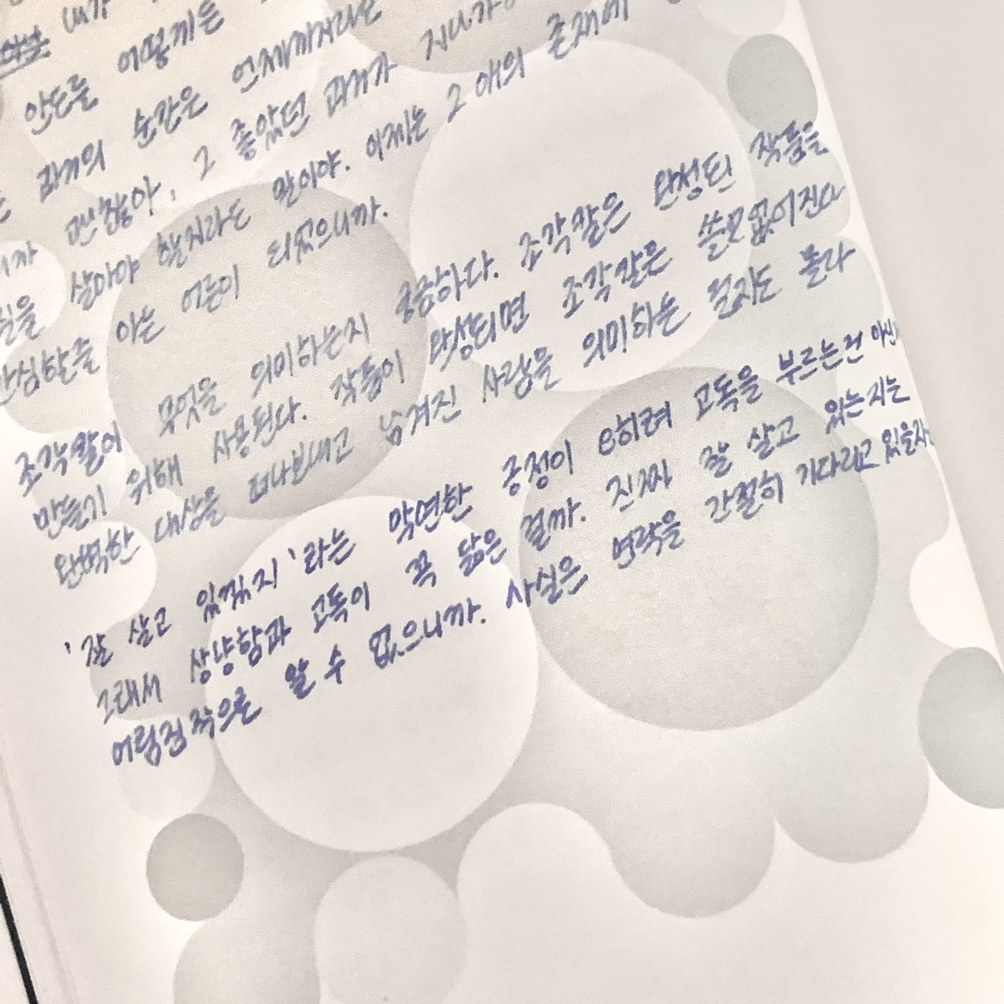 내가
안도를 어떻게든
과거의 순간은 언제까지라도
괜찮아, 그 좋았던 과거가 지나가
살아야 할지라도 말이야. 이제는 그 애의 존재에
안심할줄 아는 어른이 되었으니까.
조각칼이 무엇을 의미하는지 궁금하다. 조각칼은 완성된 작품을
만들기 위해 사용된다. 작품이 완성되면 조각칼은 쓸모없어진다
완벽한 대상을 떠나보내고 남겨진 사람을 의미하는 걸지도 몰라
'잘 살고 있겠지'라는 막연한 긍정이 오히려 고독을 부르는건 아닌
그래서 상냥함과 고독이 꼭 닮은 걸까. 진짜 잘 살고 있는지는
어림짐작으론 알 수 없으니까. 사실은 연락을 간절히 기다리고 있을지